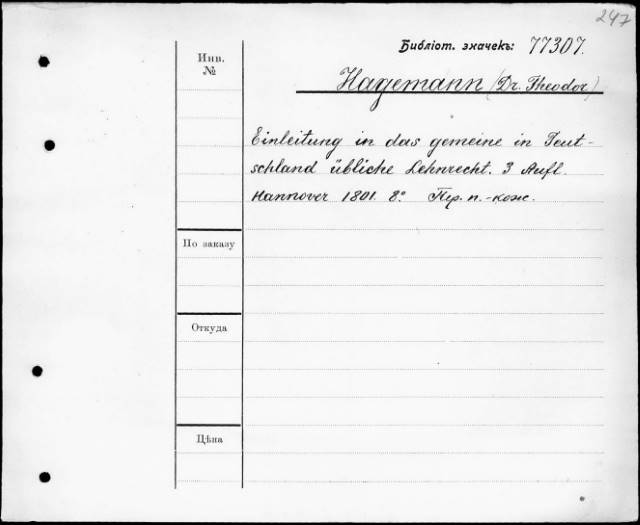 247
Библіот. значекъ: 77307.
Инв.
№
Hagemann (Dr. Theodor)
Einleitung in das gemeine in Teut-
schland übliche Lehnrecht. 3 Aufl.
Hannover 1801. 8º Пер. п.-кож.
По заказу
Откуда
Цѣна